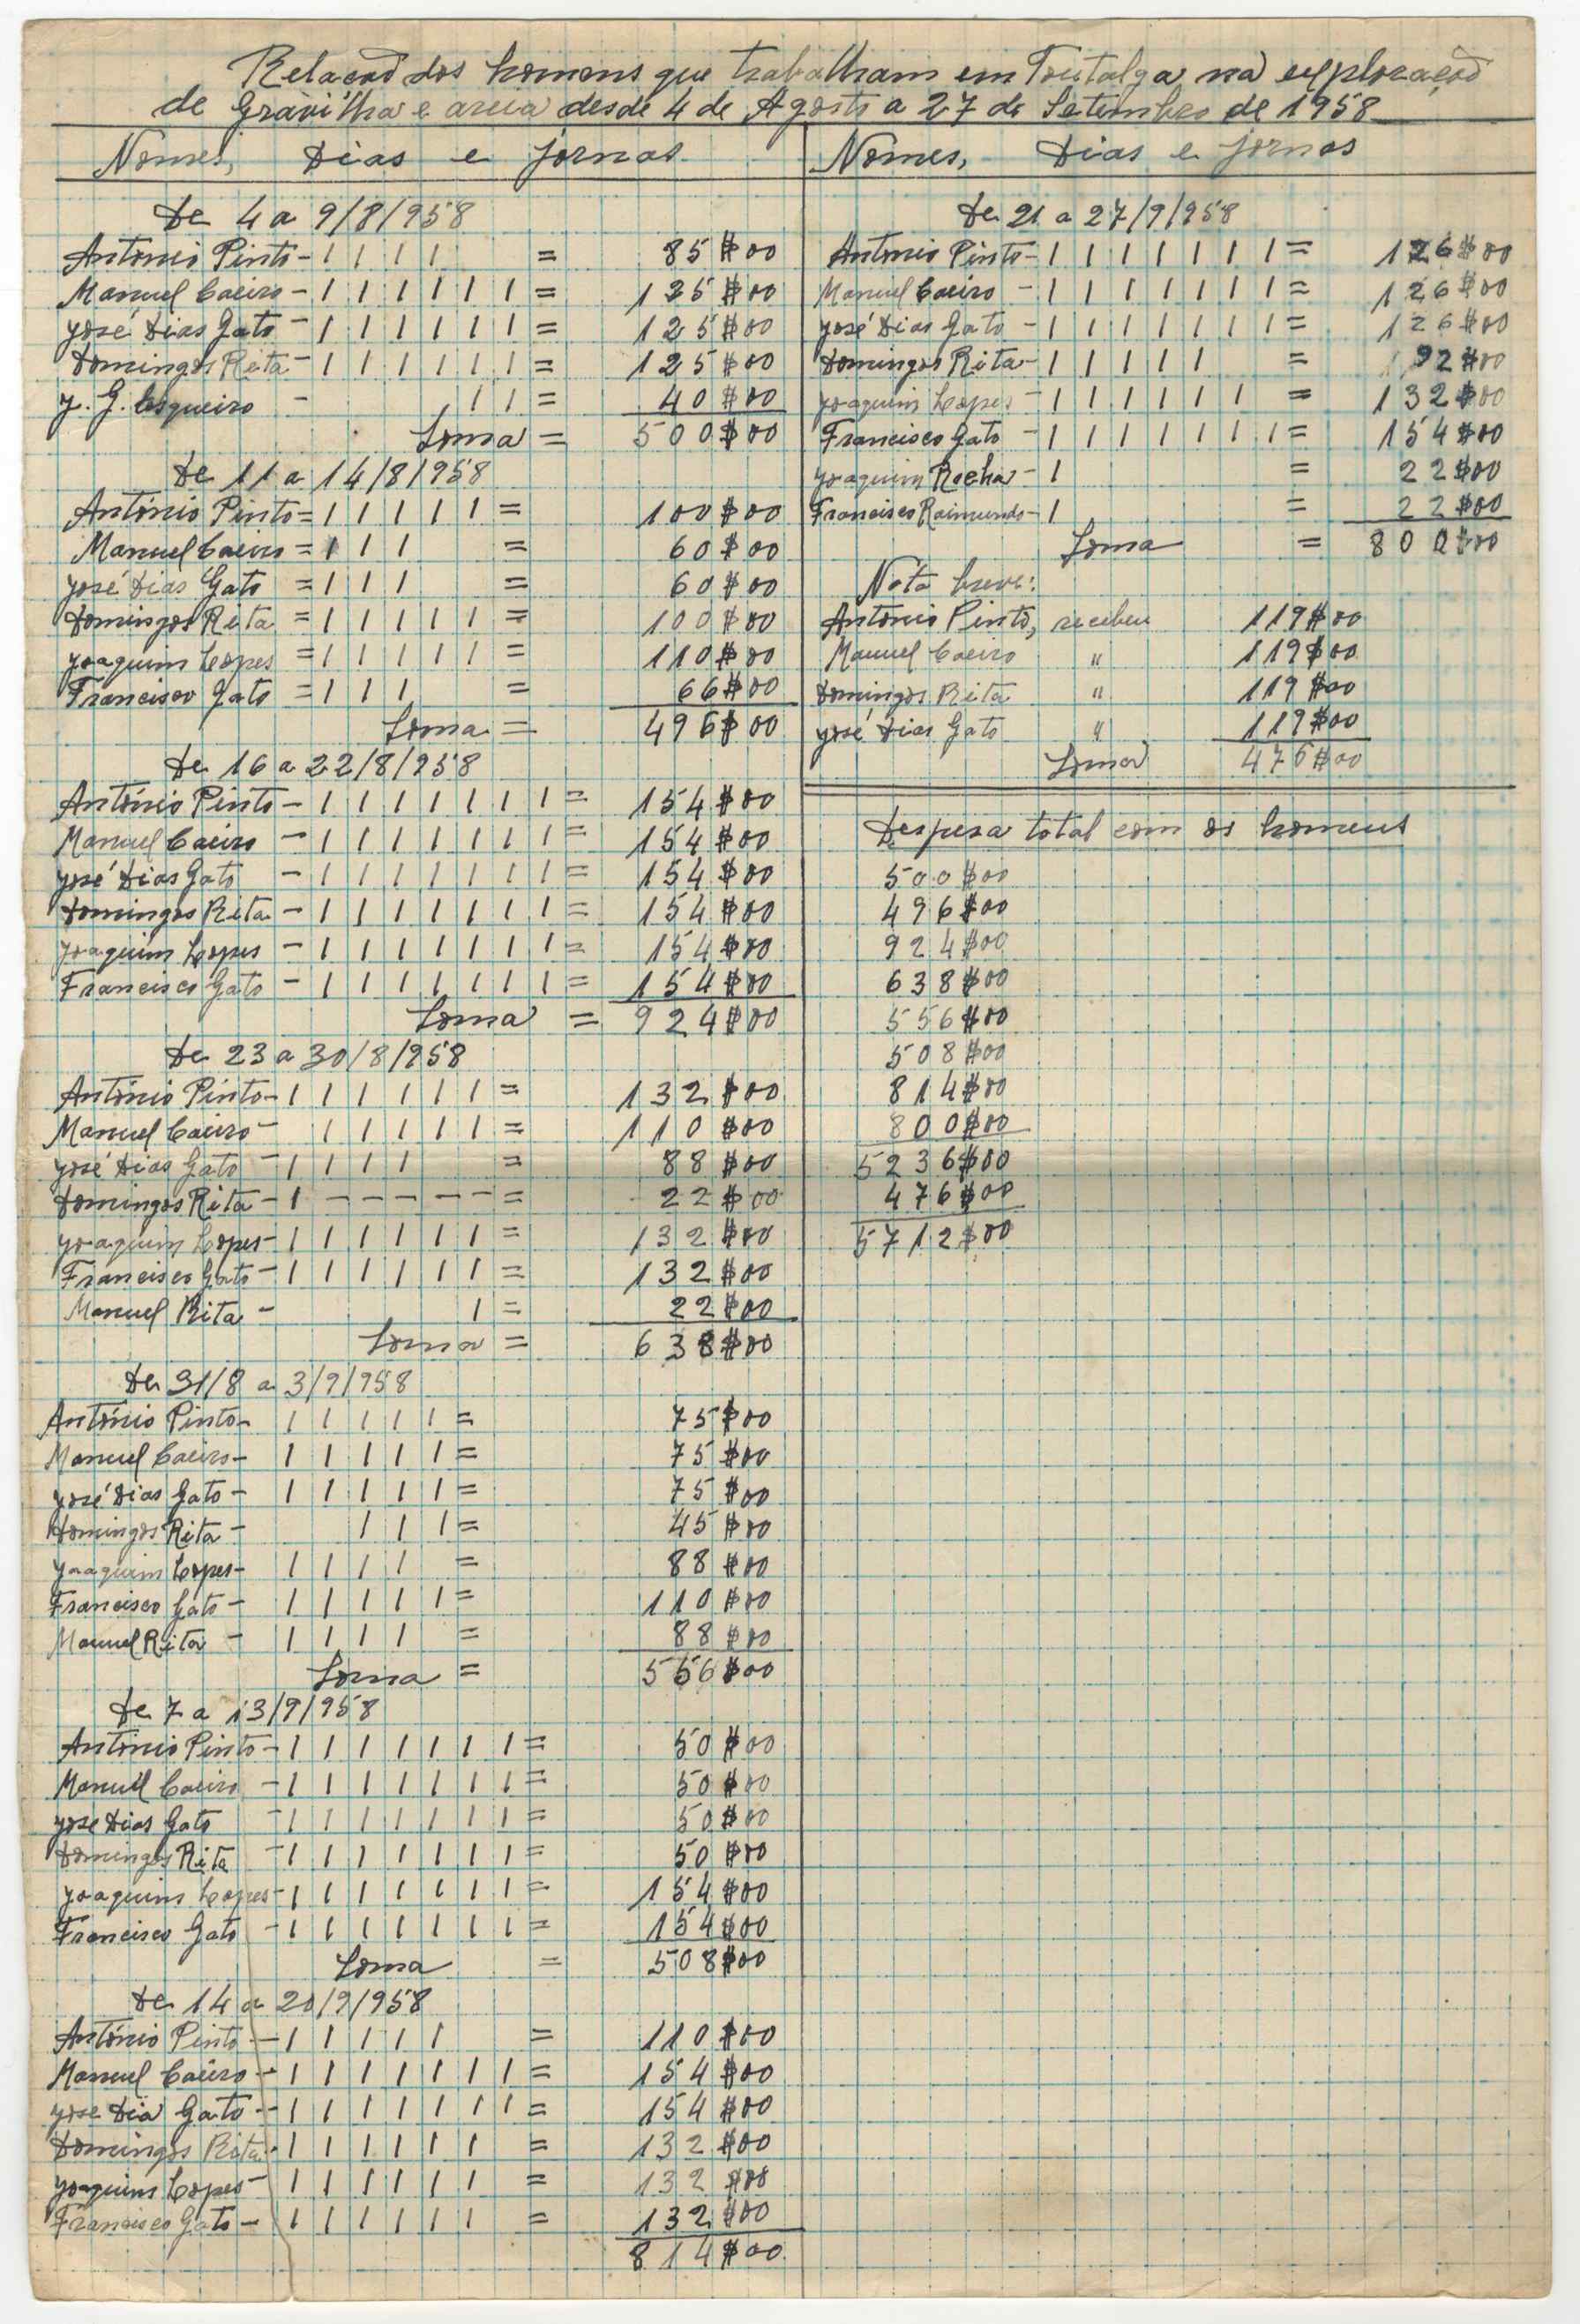 Relação dos homens que trabalham em Toutalga na exploração
de Gravilha e areia desde 4 de Agosto a 27 de Setembro de 1958
Nomes, Dias e jornas
De 4 a 9/8/1958
António Pinto - I I I I = 85$00
Manuel Caeiro - I I I I I I = 125$00
José Dias Gato - I I I I I I = 125$00
Domingos Rita - I I I I I I = 125$00
J. G. Cisqueiro - I I = 40$00
Soma = 500$00
De 11 a 14/8/1958
António Pinto = I I I I I = 100$00
Manuel Caeiro = I I I = 60$00
José Dias Gato = I I I = 60$00
Domingos Rita = I I I I I = 100$00
Joaquim Lopes = I I I I I = 110$00
Francisco Gato = I I I = 66$00
Soma = 496$00
De 16 a 22/8/1958
António Pinto - I I I I I I I = 154$00
Manuel Caeiro - I I I I I I I = 154$00
José Dias Gato - I I I I I I I = 154$00
Domingos Rita - I I I I I I I = 154$00
Joaquim Lopes - I I I I I I I = 154$00
Francisco Gato - I I I I I I I = 154$00
Soma = 924$00
De 23 a 30/8/1958
António Pinto - I I I I I I = 132$00
Manuel Caeiro - I I I I I = 110$00
José Dias Gato - I I I I = 88$00
Domingos Rita - I - - - - - = 22$00
Joaquim Lopes - I I I I I I = 132$00
Francisco Gato - I I I I I I = 132$00
Manuel Rita - I = 22$00
Soma = 638$00
De 31/8 a 3/9/1958
António Pinto - I I I I I = 75$00
Manuel Caeiro - I I I I I = 75$00
José Dias Gato - I I I I I = 75$00
Domingos Rita - I I I = 45$00
Joaquim Lopes - I I I I = 88$00
Francisco Gato - I I I I I = 110$00
Manuel Rita - I I I I = 88$00
Soma = 556$00
De 7 a 13/9/1958
António Pinto - I I I I I I I = 50$00
Manuel Caeiro - I I I I I I I = 50$00
José Dias Gato - I I I I I I I = 50$00
Domingos Rita - I I I I I I I = 50$00
Joaquim Lopes - I I I I I I I = 154$00
Francisco Gato - I I I I I I I = 154$00
Soma = 508$00
De 14 a 20/9/1958
António Pinto - I I I I I = 110$00
Manuel Caeiro - I I I I I I I = 154$00
José Dia Gato - I I I I I I I = 154$00
Domingos Rita - I I I I I I = 132$00
Joaquim Lopes - I I I I I I = 132$00
Francisco Gato - I I I I I I = 132$00
814$00
Nomes, Dias e jornas
De 21 a 27/9/1958
António Pinto - I I I I I I I = 126$00
Manuel Caeiro - I I I I I I I = 126$00
José Dias Gato - I I I I I I I = 126$00
Domingos Rita - I I I I I = 92$00
Joaquim Lopes - I I I I I I = 132$00
Francisco Gato - I I I I I I I = 154$00
Joaquim Rocha - I = 22$00
Francisco Raimundo - I = 22$00
Soma = 800$00
Nota breve:
António Pinto, recebeu 119$00
Manuel Caeiro " 119$00
Domingos Rita " 119$00
José Dias Gato " 119$00
Soma 476$00
Despesa total com os homens
500$00
496$00
924$00
638$00
556$00
508$00
814$00
800$00
5236$00
476$00
5712$00